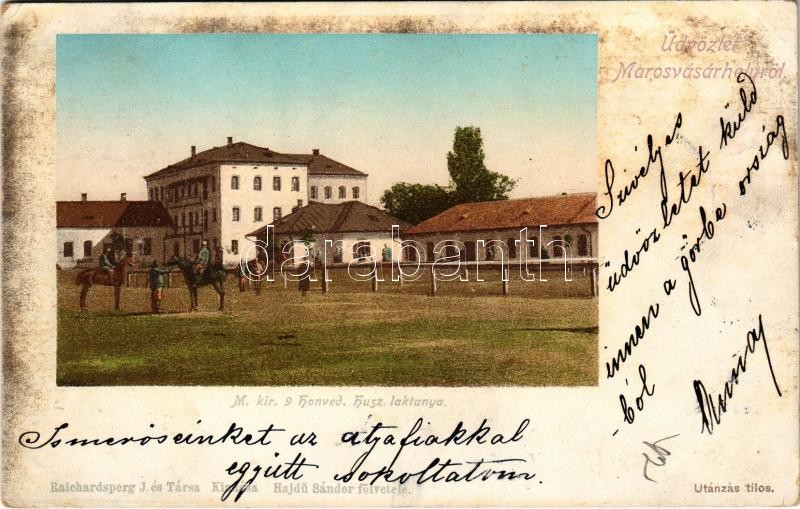 Üdvözlet
Marosvásárhelyről.
Szívélyes
üdvözletet küld
innen a görbe ország
-ból
darabanth.com
M. kir. 9 Honved. Husz. laktanya.
Ismerőseinket az atyafiakkal
együtt sokoltatom.
Raichardsperg J. és Társa Kiadása Hajdú Sándor fölvetele.
Utánzás tilos.